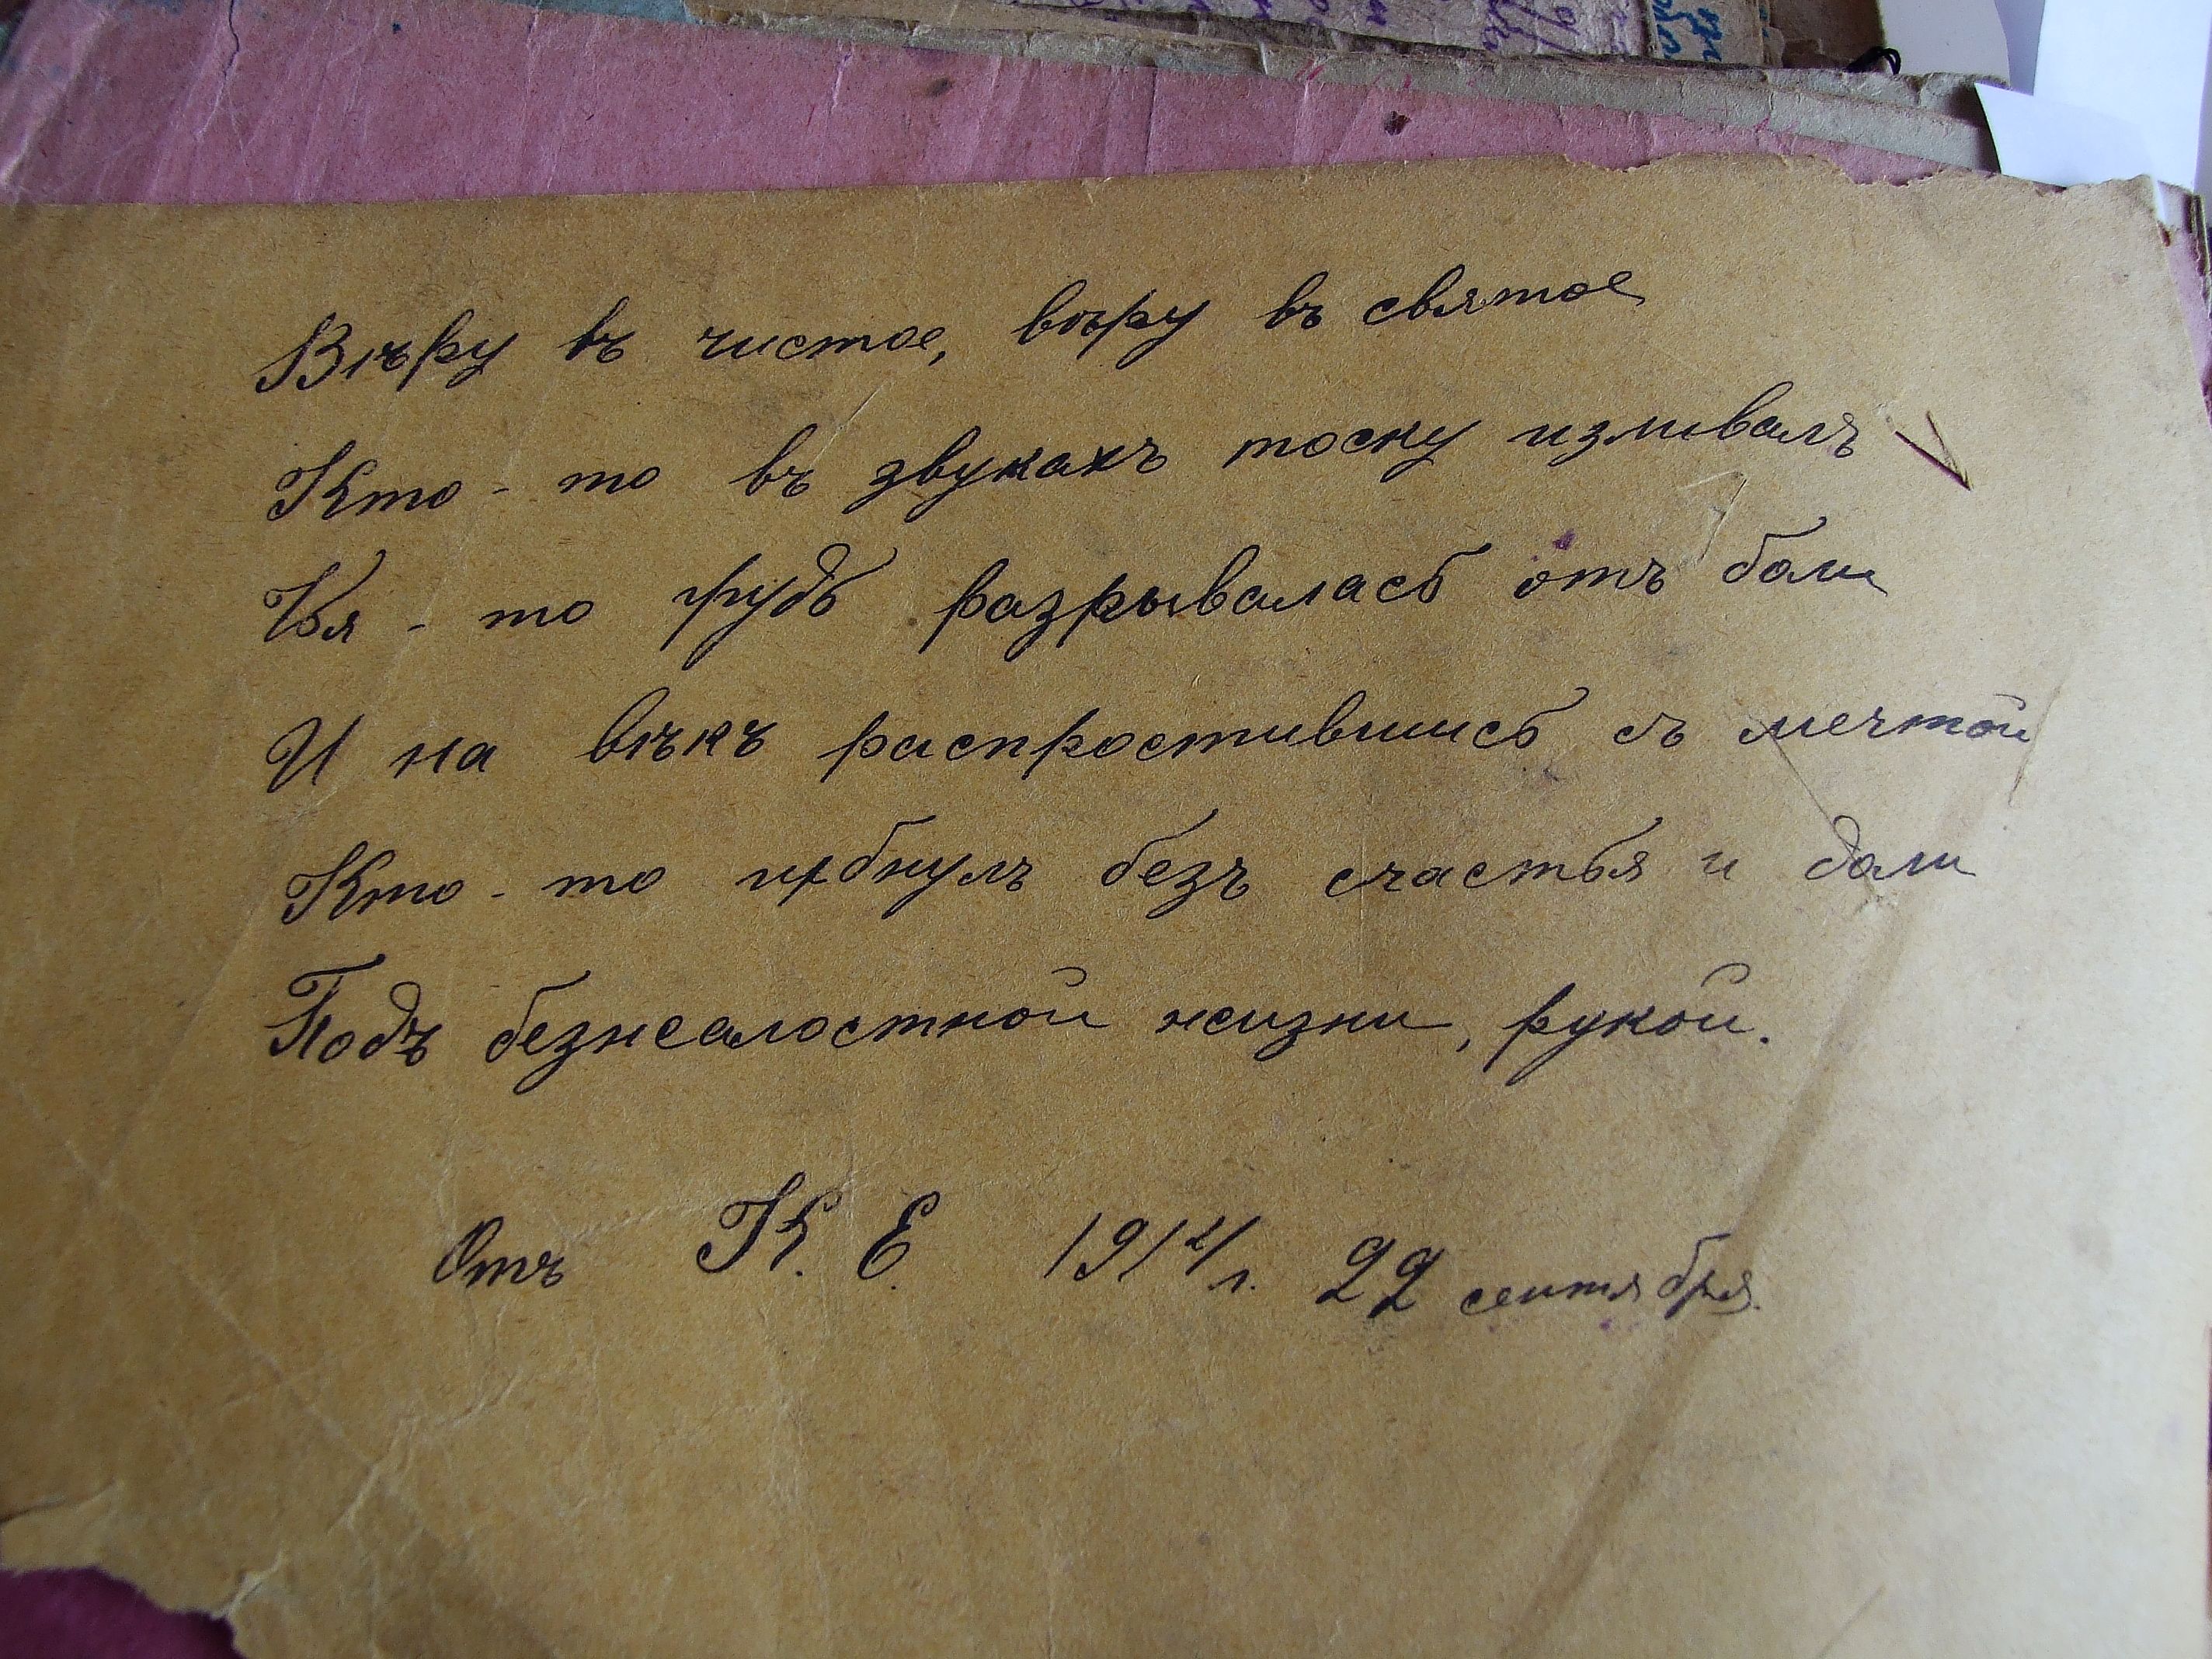 Вѣру въ чистое, вѣру въ святое
Кто-то въ звукахъ тоску изливалъ
Чья-то грудь разрывалась отъ боли
И на вѣкъ распростившись съ мечтой
Кто-то гибнулъ безъ счастья и доли
Подъ безжалостной жизни, рукой.
Отъ К. Е. 1914 г. 22 сентября.